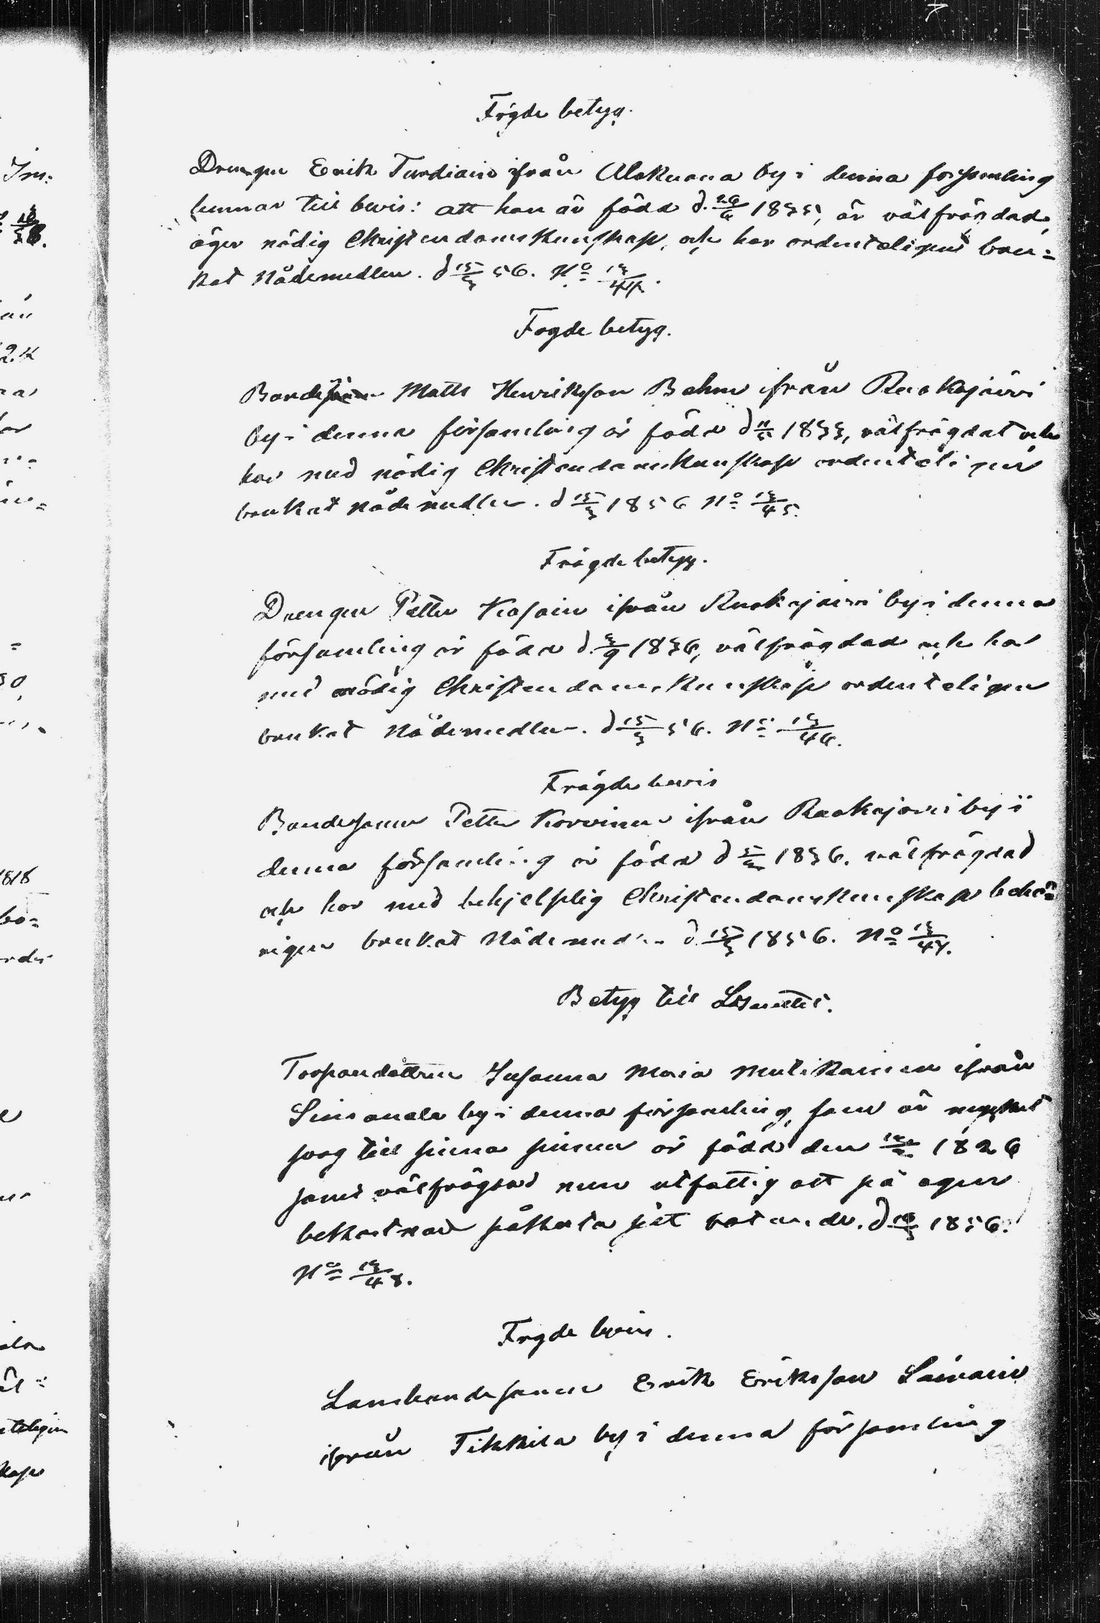 Frägde betyg.
Drengen Erik Turdiain ifrån Alakuona by i denna församling
lemnas till bevis: att han är född d. 26/6 1835, är välfrägdad,
äger nödig Christendomskunskap, och har ordenteligen bru=
kat Nådemedlen. d 15/3 56. No 13/44.
Frägde betyg.
Bonde Matts Henriksson Bohm ifrån Ruokojärvi
by i denna församling är född d 1833, välfrägdat och
har med nödig Christendomskunskap ordenteligen
brukat nådemedlen. d 15/3 1856 No 13/45.
Frägde betyg.
Drengen Petter Kosoin ifrån Ruokojärvi by i denna
församling är född d. 3/9 1836, välfrägdad och har
med nödig Christendomskunskap ordenteligen
brukat Nådemedlen. d 15/3 56. No 13/46.
Frägde bevis
Bondesonen Petter Korvinen ifrån Ruokojärvi by i
denna församling är född d 1836. välfrägdad
och har med behjelplig Christendomskunskap behö=
rigen brukat Nådemed. d 15/3 1856. No 13/47.
Betyg till
Torpardottren Susanna Maria Mutikainen ifrån
Simanala by i denna församling, som är mycket
svag till sinna sinnen är född den 1826
samt välfrägdad men utfattig att på egen
bekostnad påkosta sitt botande. d 1856.
No 13/48.
Frägde bevis.
Landbondesonen Erik Eriksson Laivain
ifrån Tikkila by i denna församling